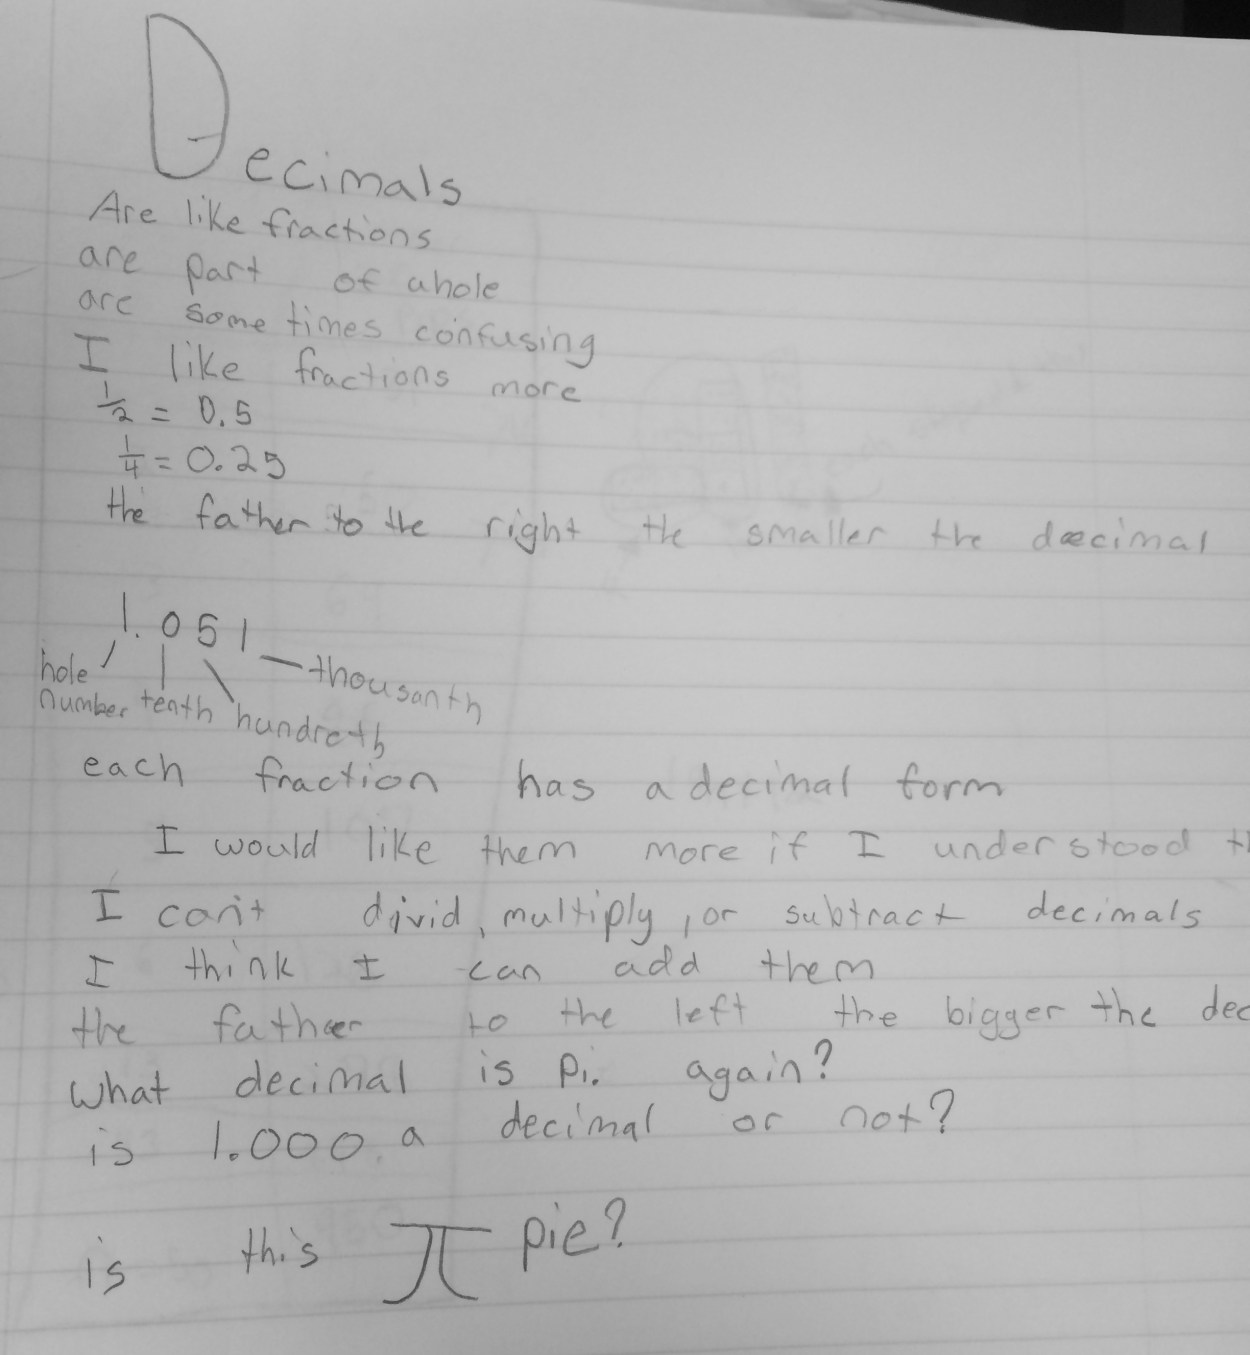 Decimals
Are like fractions
are part of a hole
are some times confusing
I like fractions more
1/2 = 0.5
1/4 = 0.25
the father to the right the smaller the decimal
1.051
hole number tenth hundreth thousanth
each fraction has a decimal form
I would like them more if I understood th
I can't divid, multiply, or subtract decimals
I think I can add them
the father to the left the bigger the dec
What decimal is pi. again?
is 1.000 a decimal or not?
is this π pie?